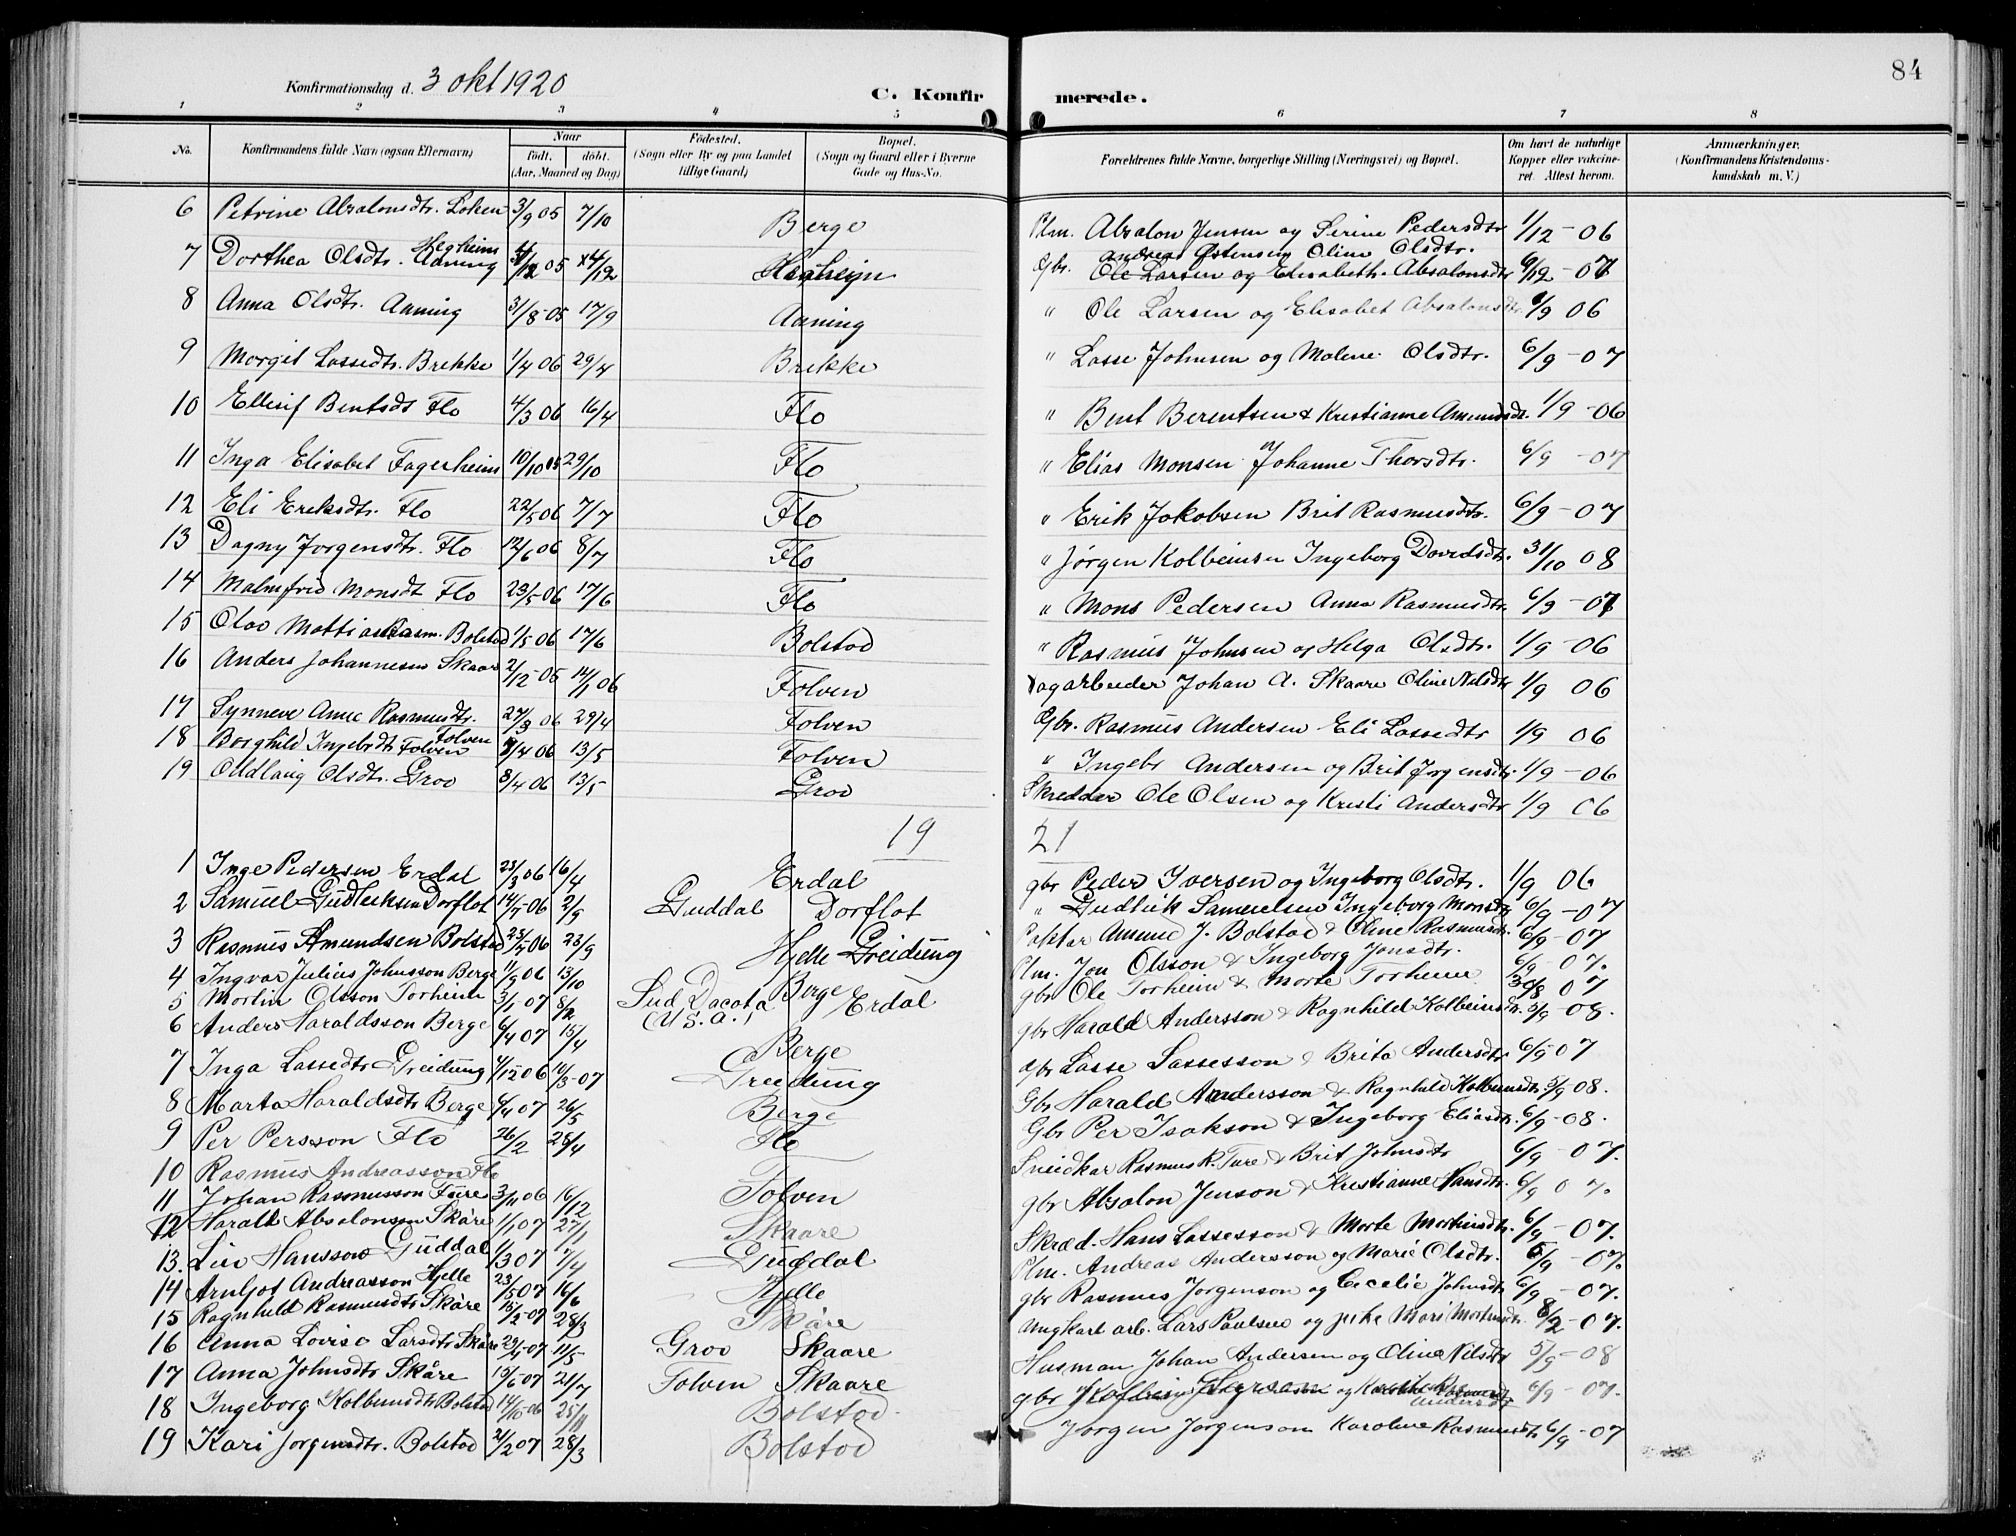 84
Konfirmationsdag d. 3 okt 1920
C. Konfirmerede.
1 2 3 4 5 6 7 8
No. Konfirmandens fulde Navn (ogsaa Efternavn) Naar født. døbt. (Aar, Maaned og Dag) Fødested. (Sogn eller By og paa Landet tillige Gaard) Bopæl. (Sogn og Gaard eller i Byerne Gade og Hus-No. Forældrenes fulde Navne, borgerlige Stilling (Næringsvei) og Bopæl. Om havt de naturlige Kopper eller vakcineret. Attest herom. Anmærkninger. (Konfirmandens Kristendomskundskab m. V.)
6 Petrine Absalonsdtr. Løken 3/9 05 7/10 Berge Plm. Absalon Jensen og Serine Pedersdtr 1/12 - 06
7 Dorthea Olsdtr. Aaning Hegheim 05 /12 Hegheim Gbr. Ole Larsen og Elisabeth Absalonsdtr Andreas Østensen Oline Olsdtr. 6/12 - 07
8 Anna Olsdtr. Aaning 31/8 - 05 17/9 Aaning " Ole Larsen og Elisabet Absalonsdtr 1/9 06
9 Margit Lassedtr. Brekke 1/4 06 29/4 Brekke " Lasse Johnsen og Malene Olsdtr. 6/9 - 07
10 Ellisif Bentsdt Flo 4/3 06 16/4 Flo " Bent Berentsen & Kristianne Amundsdr. 1/9 - 06
11 Inga Elisabet Fagerheim 10/10 05 29/10 Flo " Elias Monsen Johanne Thorsdtr. 6/9 - 07
12 Eli Eriksdtr. Flo 22/5 06 7/7 Flo " Erik Jakobsen Brit Rasmusdtr. 6/9 - 07
13 Dagny Jorgensdtr. Flo 12/6 06 8/7 Flo " Jørgen Kolbeinsen Ingeborg Davidsdtr. 31/10 08
14 Malmfrid Monsdt Flo 23/5 06 17/6 Flo " Mons Pedersen Anna Rasmusdtr. 6/9 - 07
15 Olav Mattias Rasm. Bolstad 1/5 06 17/6 Bolstad " Rasmus Johnsen og Helga Olsdtr. 1/9 - 06
16 Anders Johannesen Skaar 2/12 - 05 14/1 06 Folven Dagarbeider Johan A. Skaare Oline Nilsdtr 1/9 06
17 Synneve Anne Rasmusdtr. Folven 27/3 06 29/4 Folven Gbr. Rasmus Andersen Eli Lassedtr 1/9 06
18 Borghild Ingebrdt Folven /4 06 13/5 Folven " Ingebr Andersen og Brit Jørgensdtr. 1/9 - 06
19 Oudlaug Olsdtr. Grov 8/4 06 13/5 Grov Skredder Ole Olsen og Kristi Andersdtr 1/9 06
19 21
1 Inge Pedersen Erdal 23/3 06 16/4 Erdal gbr Peder Iversen og Ingeborg Olsdtr. 1/9 06
2 Samuel Gudleiksen Dorflot 14/7 - 06 2/9 Guddal Dorflot " Gudleik Samuelsen Ingeborg Monsdtr 6/9 - 07
3 Rasmus Amundsen Bolstad 23/7 06 23/9 Hjelle Greidung Paktar Amund J. Bolstad & Oline Rasmusdtr. 6/9 - 07
4 Ingvar Julius Johnsson Berge 11/9 06 13/10 Berge Plm. Jon Olsson & Ingeborg Jonsdtr. 6/9 - 07.
5 Martin Olsson Torheim 3/1 - 07 8/2 Sud Dacota (U.S.A.) Erdal gbr Ole Torheim & Marte Torheim 30/8 07
6 Anders Haraldsson Berge 6/4 07 15/4 Berge gbr Harald Andersson & Ragnhild Kolbeinsdtr. 5/9 - 08.
7 Inga Lassedtr Greidung 4/12 06 10/3 - 07 Greidung gbr Lasse Lassesson & Brita Andersdtr 6/9 07
8 Marta Haraldsdtr Berge 6/4 07 26/5 Berge Gbr Harald Andersson & Ragnhild Kolbeinsdtr 5/9 - 08.
9 Per Persson Flo 26/2 28/4 Flo Gbr Per Isakson & Ingeborg Eliasdtr 6/9 - 08.
10 Rasmus Andreasson Flo Sneidkar Rasmus R. Ture & Brit Johnsdtr 6/9 - 07.
11 Johan Rasmusson Ture 3/11 06 16/12 Folven gbr Absalon Jenson & Kristianne Hansdtr. 6/9 07.
12 Harald Absalonsen Skåre 1/1 07 27/1 Skaare Skræd. Hans Lassesson & Marte Martinsdtr. 6/9 - 07.
13. Liv Hanssow Guddal 1/3 07 1/4 Guddal Plm. Andreas Andersson og Marie Olsdtr. 5/9 - 07.
14 Arnljot Andreasson Hjelle 23/5 07 16/6 Hjelle gbr Rasmus Jorgenson og Cecelie Johnsdtr 6/9 - 07.
15 Ragnhild Rasmusdtr Skåre 15/2 - 07 28/3 Skåre ungkarl arb. Lars Paulsen og pike Mari Mortensdtr. 8/2 - 07.
16 Anna Lovise Larsdtr Skåre 23/4 - 07 11/5 Grov Skaare Husman Johan Andersen og Oline Nilsdtr 5/9 - 08
17 Anna Johnsdtr Skåre 15/6 - 07 21/7 Folven Skaare gbr Kolbein og Andersdtr 6/9 - 07.
18 Ingeborg Kolbeinsdtr Bolstad 14/10 - 06 25/11 Bolstad Jorgen Jorgenson Karoline Rasmusdtr 6/9 - 07
19 Kari Jorgensdtr. Bolstad 2/2 07 28/3 Bolstad